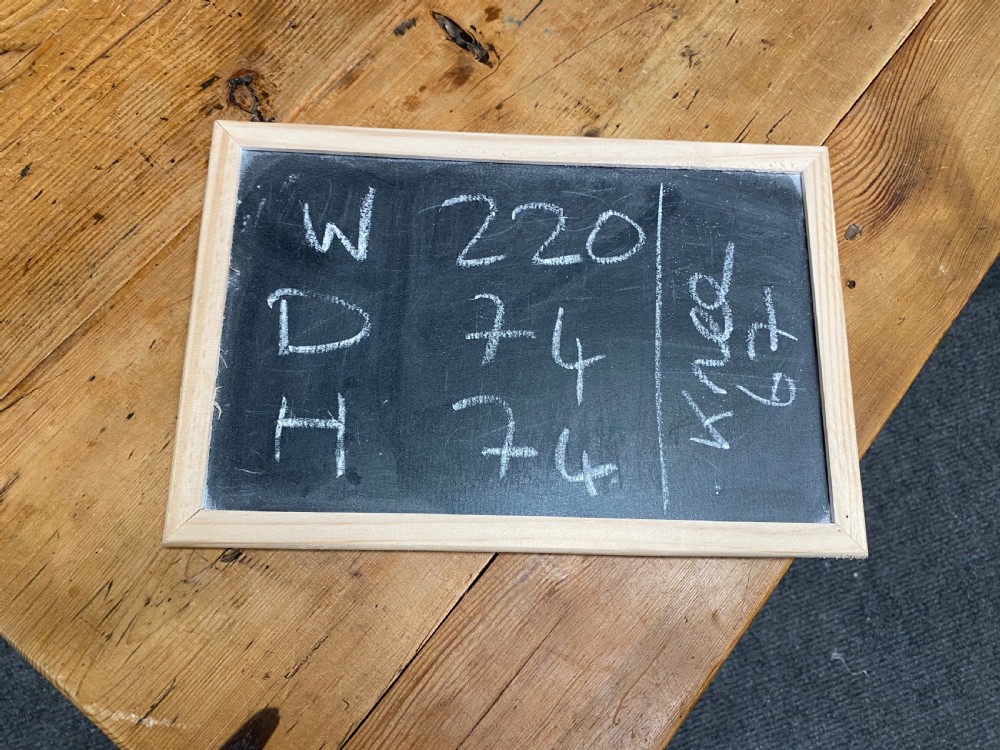 W 220
D 74
H 74
Knee
67